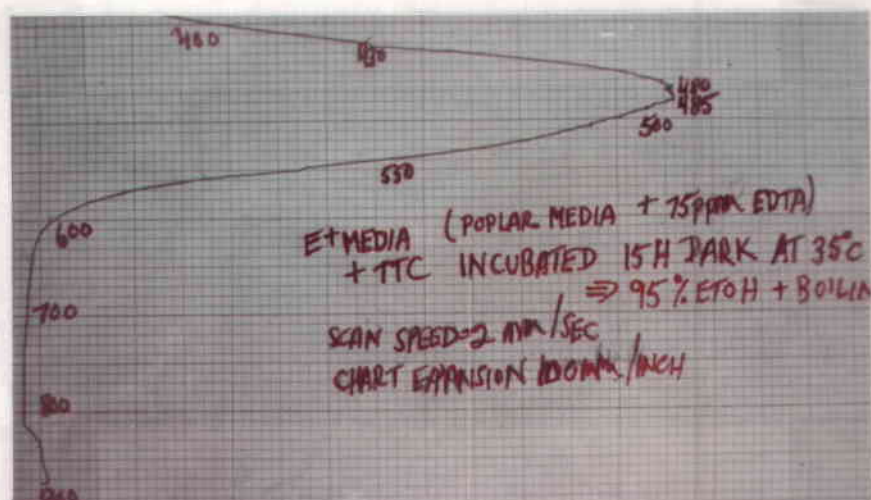 400
430
480
485
500
550
600
E+MEDIA (POPLAR MEDIA + 75ppm EDTA)
+ TTC INCUBATED 15H DARK AT 35°C
⇒ 95% ETOH + BOILIN
700
SCAN SPEED=2 nm/SEC
CHART EXPANSION 100nm/INCH
800